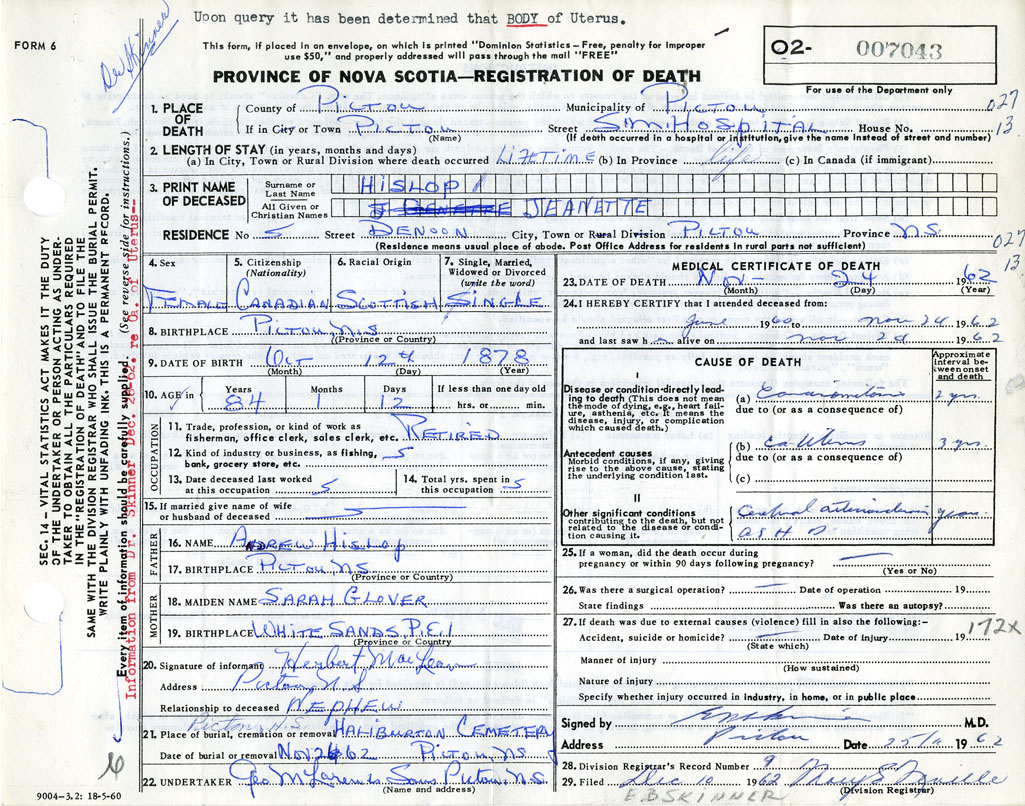 Upon query it has been determined that BODY of Uterus.
FORM 6
Dr Skinner
This form, if placed in an envelope, on which is printed "Dominion Statistics – Free, penalty for improper
use $50," and properly addressed will pass through the mail "FREE"
PROVINCE OF NOVA SCOTIA—REGISTRATION OF DEATH
O2- 007043
For use of the Department only
027
13
1. PLACE OF DEATH
County of PICTOU Municipality of PICTOU
If in City or Town PICTOU Street S.M. HOSPITAL House No.
(Name) (If death occurred in a hospital or institution, give the name instead of street and number)
2. LENGTH OF STAY (in years, months and days)
(a) In City, Town or Rural Division where death occurred LIFETIME (b) In Province life (c) In Canada (if immigrant)
3. PRINT NAME OF DECEASED
Surname or Last Name HISLOP
All Given or Christian Names JEANETTE
RESIDENCE No 5 Street DENOON City, Town or Rural Division PICTOU Province N.S.
(Residence means usual place of abode. Post Office Address for residents in rural parts not sufficient)
027
13
4. Sex FEMALE
5. Citizenship (Nationality) CANADIAN
6. Racial Origin SCOTTISH
7. Single, Married, Widowed or Divorced (write the word) SINGLE
8. BIRTHPLACE PICTOU N.S
(Province or Country)
9. DATE OF BIRTH Oct 12th 1878
(Month) (Day) (Year)
10. AGE in Years 84 Months 1 Days 12 If less than one day old hrs. or min.
OCCUPATION
11. Trade, profession, or kind of work as fisherman, office clerk, sales clerk, etc. RETIRED
12. Kind of industry or business, as fishing, bank, grocery store, etc.
13. Date deceased last worked at this occupation
14. Total yrs. spent in this occupation
15. If married give name of wife or husband of deceased
FATHER
16. NAME ANDREW HISLOP
17. BIRTHPLACE PICTOU N.S.
(Province or Country)
MOTHER
18. MAIDEN NAME SARAH GLOVER
19. BIRTHPLACE WHITE SANDS P.E.I
(Province or Country)
20. Signature of informant Herbert MacLean
Address Pictou, N.S
Relationship to deceased NEPHEW
Pictou, N.S.
21. Place of burial, cremation or removal HALIBURTON CEMETERY
Date of burial or removal Nov 26 62 PICTOU N.S.
22. UNDERTAKER Geo McLaren & Sons Pictou, N.S.
(Name and address)
MEDICAL CERTIFICATE OF DEATH
23. DATE OF DEATH Nov- 24 1962
(Month) (Day) (Year)
24. I HEREBY CERTIFY that I attended deceased from:
June 1960 to Nov 24 1962
and last saw h alive on Nov 1962
CAUSE OF DEATH
Approximate interval between onset and death
I
Disease or condition directly leading to death (This does not mean the mode of dying, e.g., heart failure, asthenia, etc. It means the disease, injury, or complication which caused death.)
(a) 2 yrs.
due to (or as a consequence of)
Antecedent causes
Morbid conditions, if any, giving rise to the above cause, stating the underlying condition last.
(b) Ca Uterus 3 yrs.
due to (or as a consequence of)
(c)
II
Other significant conditions contributing to the death, but not related to the disease or condition causing it.
years
A S H D
25. If a woman, did the death occur during pregnancy or within 90 days following pregnancy?
(Yes or No)
26. Was there a surgical operation? Date of operation 19
State findings Was there an autopsy?
27. If death was due to external causes (violence) fill in also the following:–
Accident, suicide or homicide? Date of injury 19
(State which)
172x
Manner of injury
(How sustained)
Nature of injury
Specify whether injury occurred in industry, in home, or in public place
Signed by EB Skinner M.D.
Address Pictou Date 25/11 1962
28. Division Registrar's Record Number 9
29. Filed Dec 10 1962
(Division Registrar)
E B SKINNER
SEC. 14 – VITAL STATISTICS ACT MAKES IT THE DUTY
OF THE UNDERTAKER OR PERSON ACTING AS UNDERTAKER
TO OBTAIN ALL THE PARTICULARS REQUIRED
IN THE "REGISTRATION OF DEATH" AND TO FILE THE
SAME WITH THE DIVISION REGISTRAR WHO SHALL ISSUE THE BURIAL PERMIT.
WRITE PLAINLY WITH UNFADING INK. THIS IS A PERMANENT RECORD.
Every item of information should be carefully supplied. (See reverse side for instructions.)
Information from Dr. Skinner Dec. 28-62. re Ca. of Uterus--
6
9004–3.2: 18-5-60